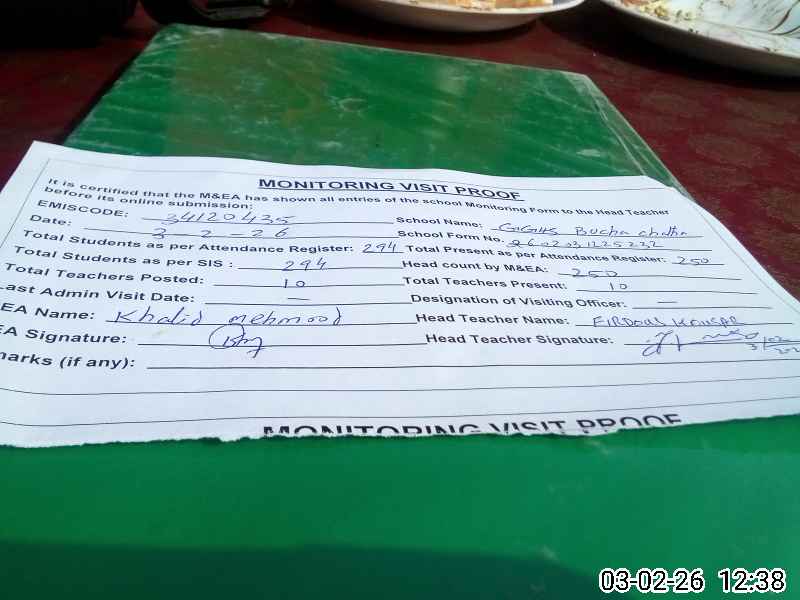 MONITORING VISIT PROOF
It is certified that the M&EA has shown all entries of the school Monitoring Form to the Head Teacher
before its online submission:
EMISCODE: 34120435 School Name: GGHS Bucha chatha
Date: 3-2-26 School Form No. 2602031225232
Total Students as per Attendance Register: 294 Total Present as per Attendance Register: 250
Total Students as per SIS : 294 Head count by M&EA: 250
Total Teachers Posted: 10 Total Teachers Present: 10
Last Admin Visit Date: — Designation of Visiting Officer: —
EA Name: Khalid mehmood Head Teacher Name: FIRDOUS KOUSAR
EA Signature: Head Teacher Signature:
marks (if any):
MONITORING VISIT PROOF
03-02-26 12:38